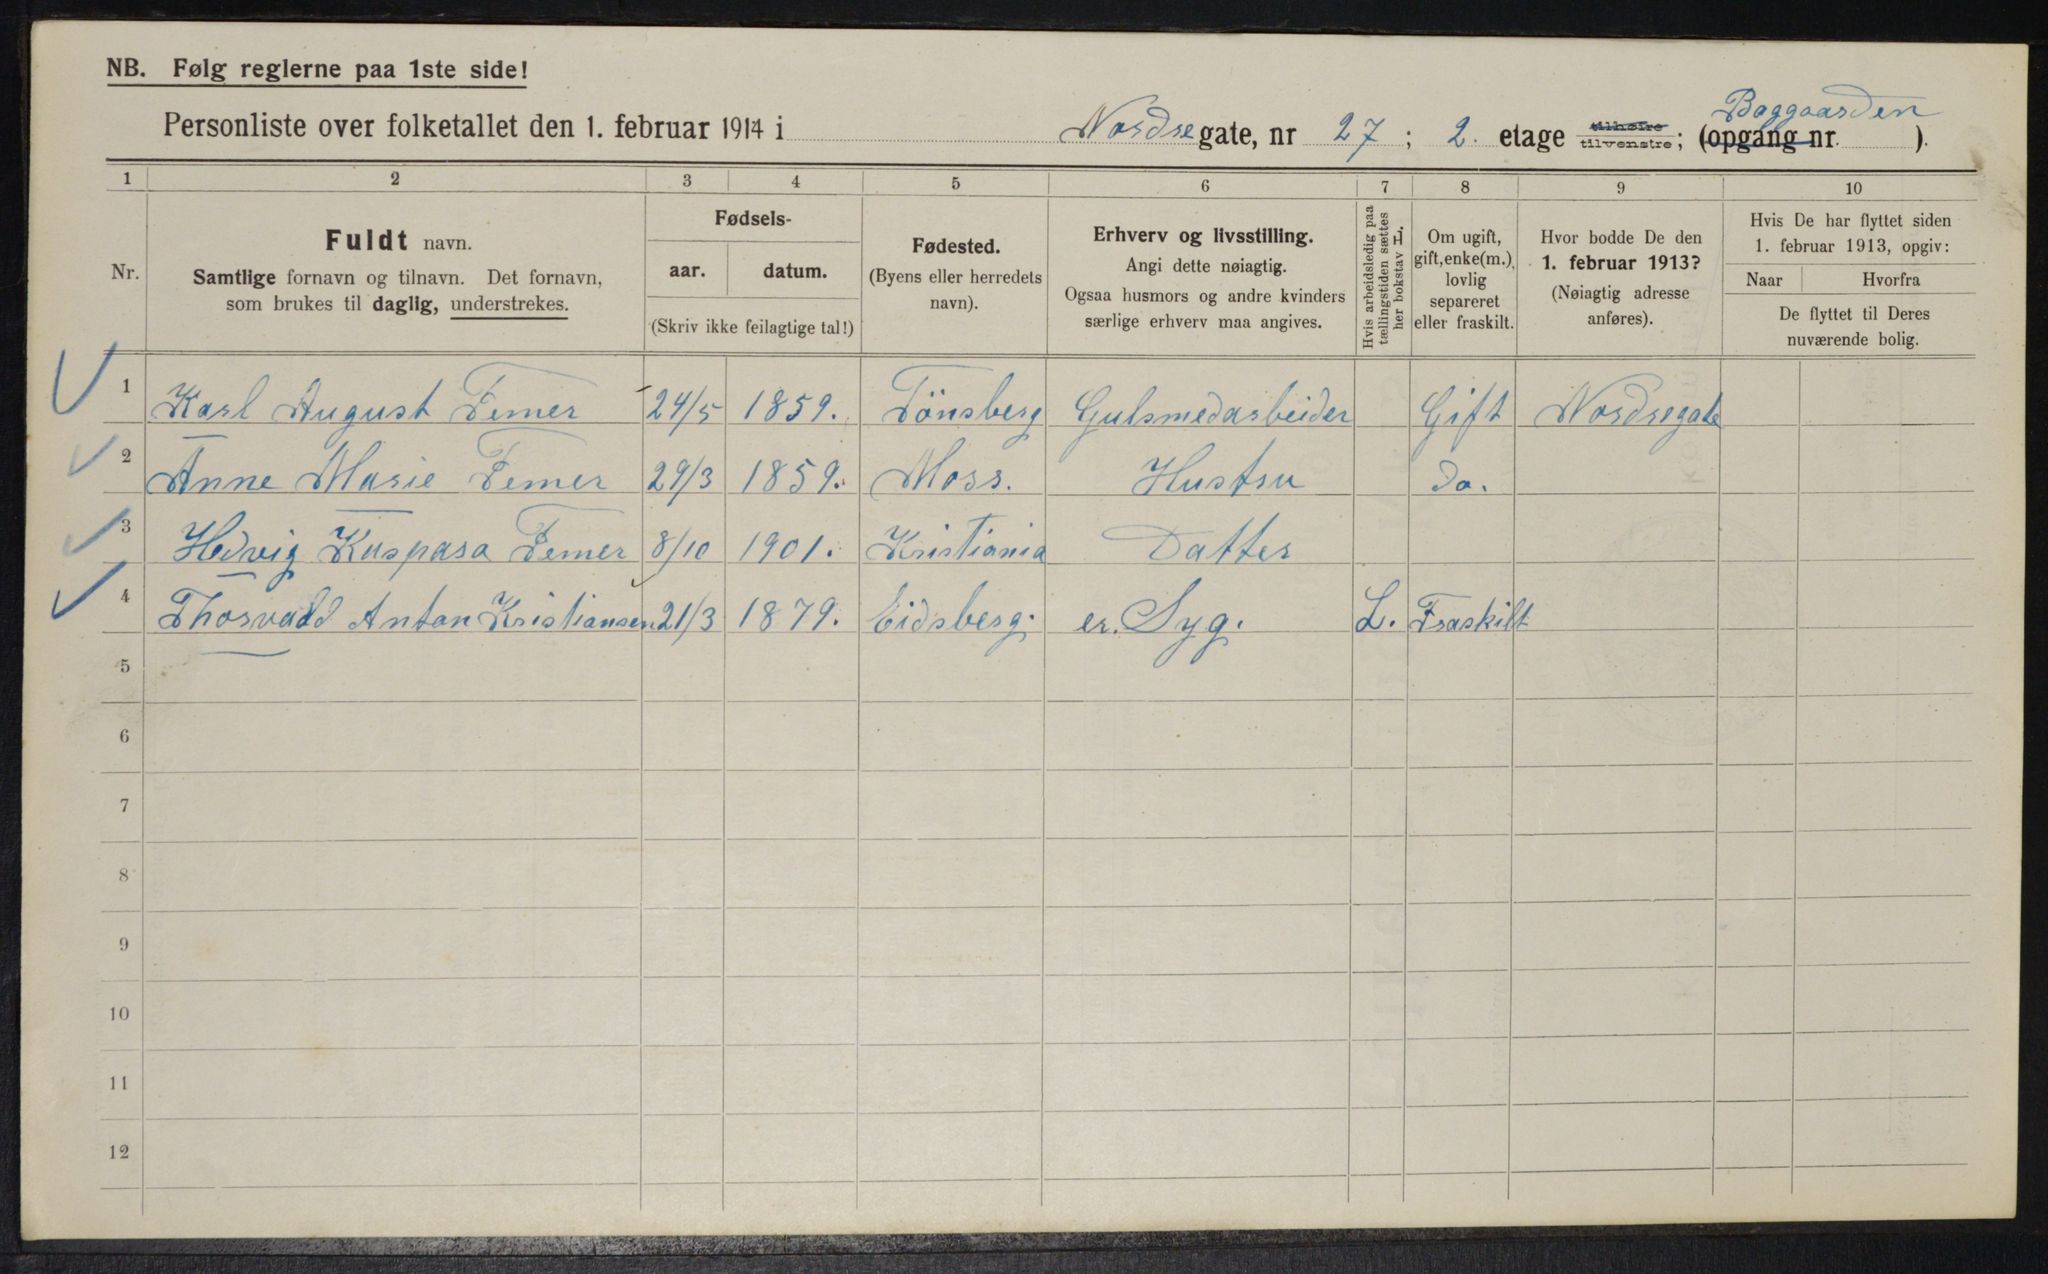 NB. Følg reglerne paa 1ste side!
Personliste over folketallet den 1. februar 1914 i Nordregate, nr 27; 2. etage tilhøire tilvenstre; (opgang nr. Baggaarden).
1 2 3 4 5 6 7 8 9 10
Nr.
Fuldt navn.
Samtlige fornavn og tilnavn. Det fornavn,
som brukes til daglig, understrekes.
Fødsels-
aar. datum.
(Skriv ikke feilagtige tal!)
Fødested.
(Byens eller herredets
navn).
Erhverv og livsstilling.
Angi dette nøiagtig.
Ogsaa husmors og andre kvinders
særlige erhverv maa angives.
Hvis arbeidsledig paa
tællingstiden sættes
her bokstav L.
Om ugift,
gift, enke(m.),
lovlig
separeret
eller fraskilt.
Hvor bodde De den
1. februar 1913?
(Nøiagtig adresse
anføres).
Hvis De har flyttet siden
1. februar 1913, opgiv:
Naar Hvorfra
De flyttet til Deres
nuværende bolig.
1 Karl August Femer 24/5 1859. Tönsberg Gulsmedarbeider Gift Nordregate
2 Anne Marie Femer 29/3 1859. Moss. Hustru do.
3 Hedvig Kaspara Femer 8/10 1901. Kristiania Datter
4 Thorvald Anton Kristiansen 21/3 1879. Eidsberg. er. Syg. L. Fraskilt
5
6
7
8
9
10
11
12